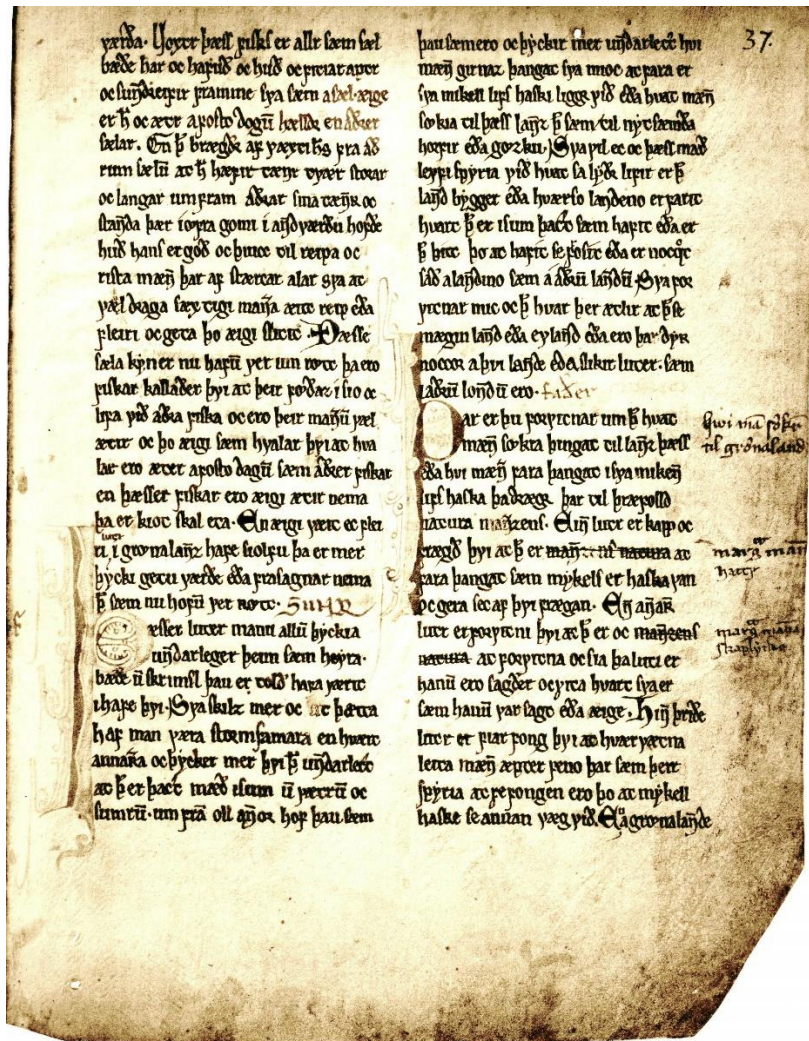 værða. Hovet þæss fisks er allt sæm sæl
bæðe har oc hafuð oc huð oc fitiar aptr
oc sundreifir framme sva sæm a sæl. æige
er h̅ oc ætr a fosto dogu̅ hældr en aðrer
sælar. En þ̅ brægðr af væxti h̅s fra að
rum sælu̅ at h̅ hæfir tænr tvær storar
oc langar um fram aðrar sma tænr oc
standa þær i ofra gomi i andværðu hofðe
huð hans er goð oc þiuc til reipa oc
rista mæn̅ þar af stærcar alar sva at
væl draga sæx tigi man̅a æitt reip eða
fleiri oc geta þo æigi slitit. Þæsse
sæla kyn er nu hafu̅ vet um rótt þa ero
fiskar kallaðer þvi at þeir foðaz i sio oc
lifa við aðra fiska oc ero þeir man̅u væl
ætir oc þo æigi sæm hvalar þvi at hva
lar ero æter a fosto dagu̅ sæm aðrer fiskar
en þæsser fiskar ero æigi ætir nema
þa er kiot skal eta. En æigi væit ec flei
luti
ri i gronalanz hafe siolfu þa er mer
þycki getu værðe eða frasagnar nema
þ̅ sæm nu hofu̅ vet rótt. Sunr
Þesser luter manu allu̅ þyckia
undarleger þeim sæm høyra.
bæðe u̅ skrimsl þau er tolð hava værit
i hafe þvi. Sva skilz mer oc at þætta
haf man væra stormsamara en hvært
annar̅a oc þycker mer þvi þ̅ undarlect
at þ̅ er þact mæð isum u̅ vætru̅ oc
sumru̅. um fra̅ oll an̅or hof þau sæm
37.
þau sæm ero oc þyckir mer undarlect hvi
mæn̅ girnaz þangat sva mioc at fara er
sva mikell lifs haski liggr við eða hvat mæn̅
sokia til þæss lanz þ̅ sæm til nytsæmða
horfir eða gozku. Sva vil ec oc þæss mæð
leyfi spyria við hvat sa lyðr lifir er þ̅
land bygger eða hværso landeno er farit
hvart þ̅ er isum þact sæm hafit eða er
þ̅ bert þo at hafit se frosit eða er nocot
sáð a landino sæm i aðru̅ landu̅. Sva for
vitnar mic oc þ̅ hvar þer ætlit at þ̅ se
mægin land eða eyland eða ero þar dyr
noccor a þvi lande eða slikir luter. sæm
i aðru̅ londu̅ ero. fader
Þar er þu forvitnar um þ̅ hvat
mæn̅ sokia þingat til lanz þæss
eða hvi mæn̅ fara þangat i sva miken̅
lifs haska þa dræge þar til þræfolld
natura man̅zens. Ein̅ lutr er kapp oc
frægð þvi at þ̅ er man̅z ens natura at
fara þangat sæm mykels er haska van
oc gera sec af þvi frægan. En an̅ar
lutr er forvitni þvi at þ̅ er oc man̅zens
natura at forvitna oc sia þa luti er
hanu̅ ero sagðer oc vita hvart sva er
sæm hanu̅ var sagt eða æige. Hin̅ þriðe
lutr er fiar fong þvi at hværvætna
leita mæn̅ æpter feno þar sæm þeir
spyria at fe fongen ero þo at mykell
haske se annan væg við. En a gronalande
hwi ma̅ søkir
til grønaland
marg ma̅n
hatty
marg man̅a
skaplyndi